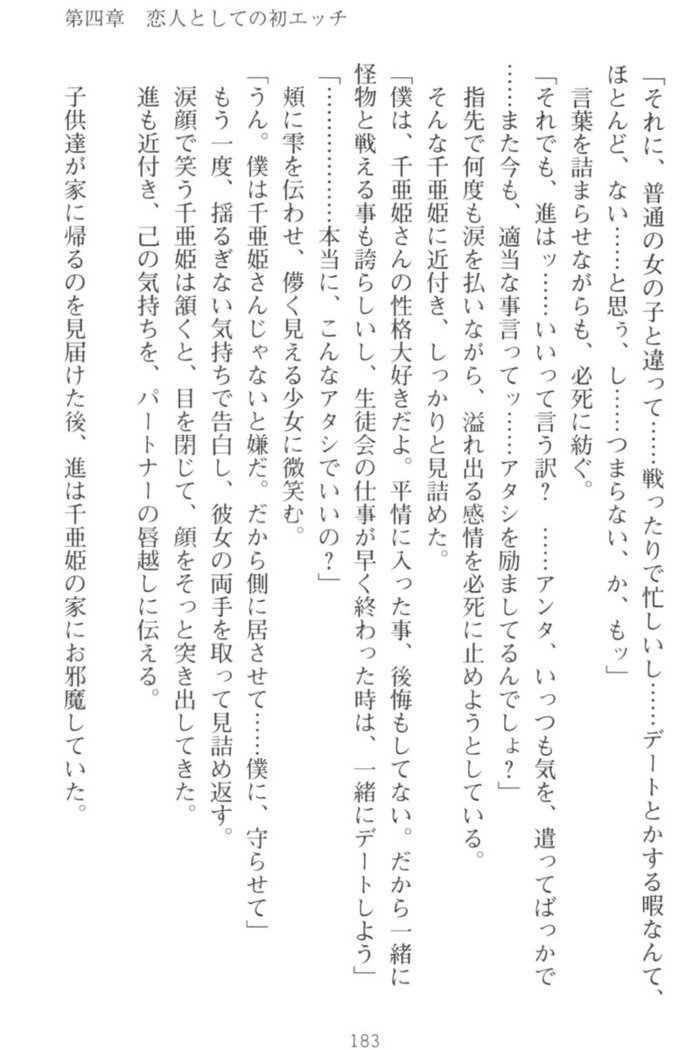 第四章　恋人としての初エッチ
「それに、普通の女の子と違って……戦ったりで忙しいし……デートとかする暇なんて、
ほとんど、ない……と思ぅ、し……つまらない、か、もッ」
　言葉を詰まらせながらも、必死に紡ぐ。
「それでも、進はッ……いいって言う訳？　……アンタ、いっつも気を、遣ってばっかで
……また今も、適当な事言ってッ……アタシを励ましてるんでしょ？」
　指先で何度も涙を払いながら、溢れ出る感情を必死に止めようとしている。
　そんな千亜姫に近付き、しっかりと見詰めた。
「僕は、千亜姫さんの性格大好きだよ。平情に入った事、後悔もしてない。だから一緒に
怪物と戦える事も誇らしいし、生徒会の仕事が早く終わった時は、一緒にデートしよう」
「………………本当に、こんなアタシでいいの？」
　頬に雫を伝わせ、儚く見える少女に微笑む。
「うん。僕は千亜姫さんじゃないと嫌だ。だから側に居させて……僕に、守らせて」
　もう一度、揺るぎない気持ちで告白し、彼女の両手を取って見詰め返す。
　涙顔で笑う千亜姫は頷くと、目を閉じて、顔をそっと突き出してきた。
　進も近付き、己の気持ちを、パートナーの唇越しに伝える。
　子供達が家に帰るのを見届けた後、進は千亜姫の家にお邪魔していた。
183